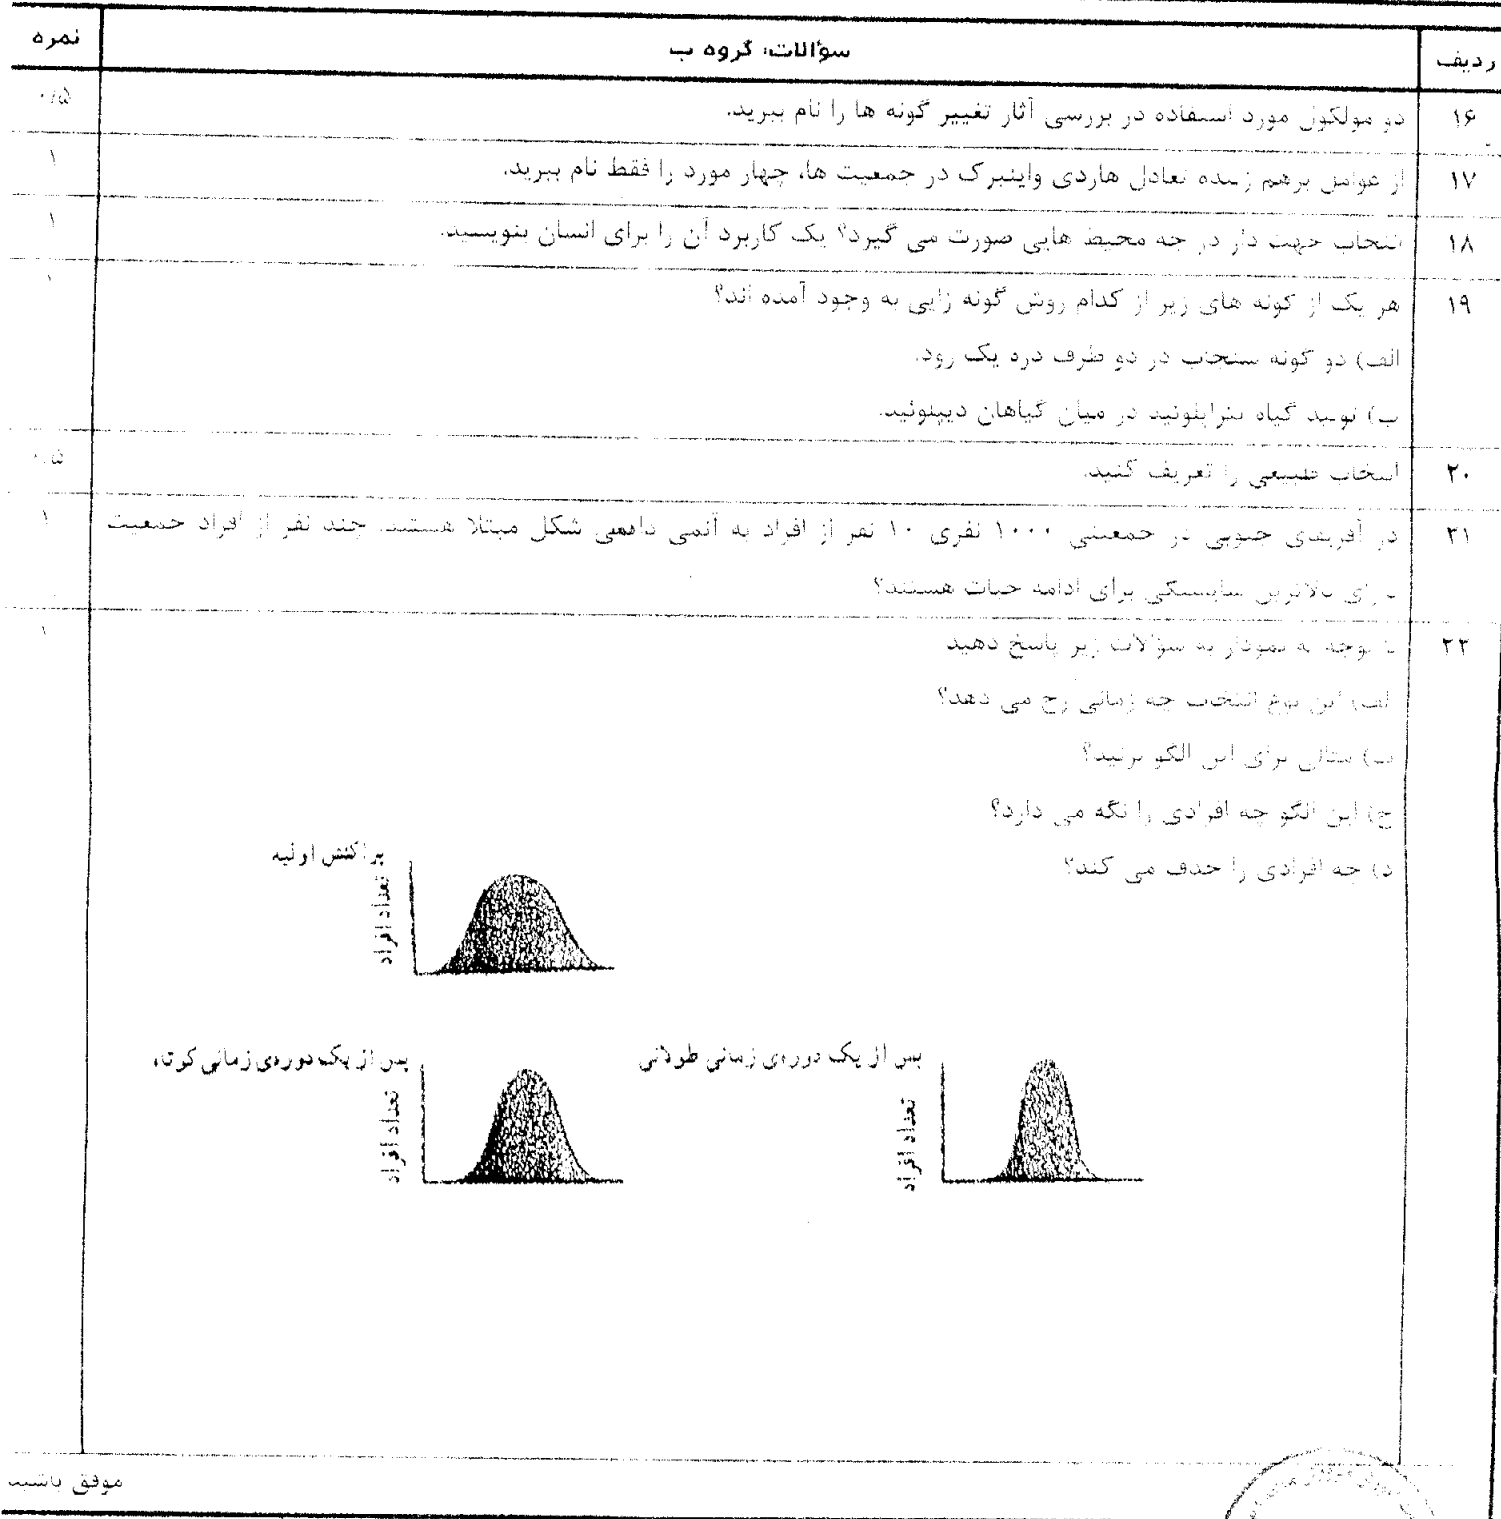 ردیف سؤالات، گروه ب نمره
۱۶ دو مولکول مورد استفاده در بررسی آثار تغییر گونه ها را نام ببرید. ۰/۵
۱۷ از عوامل برهم زننده تعادل هاردی واینبرگ در جمعیت ها، چهار مورد را فقط نام ببرید. ۱
۱۸ انتخاب جهت دار در چه محیط هایی صورت می گیرد؟ یک کاربرد آن را برای انسان بنویسید. ۱
۱۹ هر یک از گونه های زیر از کدام روش گونه زایی به وجود آمده اند؟ ۱
الف) دو گونه سنجاب در دو طرف دره یک رود.
ب) تولید گیاه تتراپلوئید در میان گیاهان دیپلوئید.
۲۰ انتخاب طبیعی را تعریف کنید. ۰/۵
۲۱ در آفریقای جنوبی در جمعیتی ۱۰۰۰ نفری ۱۰ نفر از افراد به آنمی داسی شکل مبتلا هستند. چند نفر از افراد جمعیت ۱
دارای بالاترین شایستگی برای ادامه حیات هستند؟
۲۲ با توجه به نمودار به سؤالات زیر پاسخ دهید ۱
الف) این نوع انتخاب چه زمانی رخ می دهد؟
ب) مثالی برای این الگو بزنید؟
ج) این الگو چه افرادی را نگه می دارد؟
د) چه افرادی را حذف می کند؟
پراکنش اولیه
تعداد افراد
پس از یک دوره‌ی زمانی طولانی
تعداد افراد
پس از یک دوره‌ی زمانی کوتاه
تعداد افراد
موفق باشید